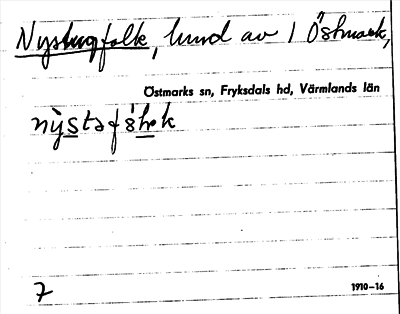 Nystugfolk, hmd av 1 Östmark,
Östmarks sn, Fryksdals hd, Värmlands län
7
1910-16